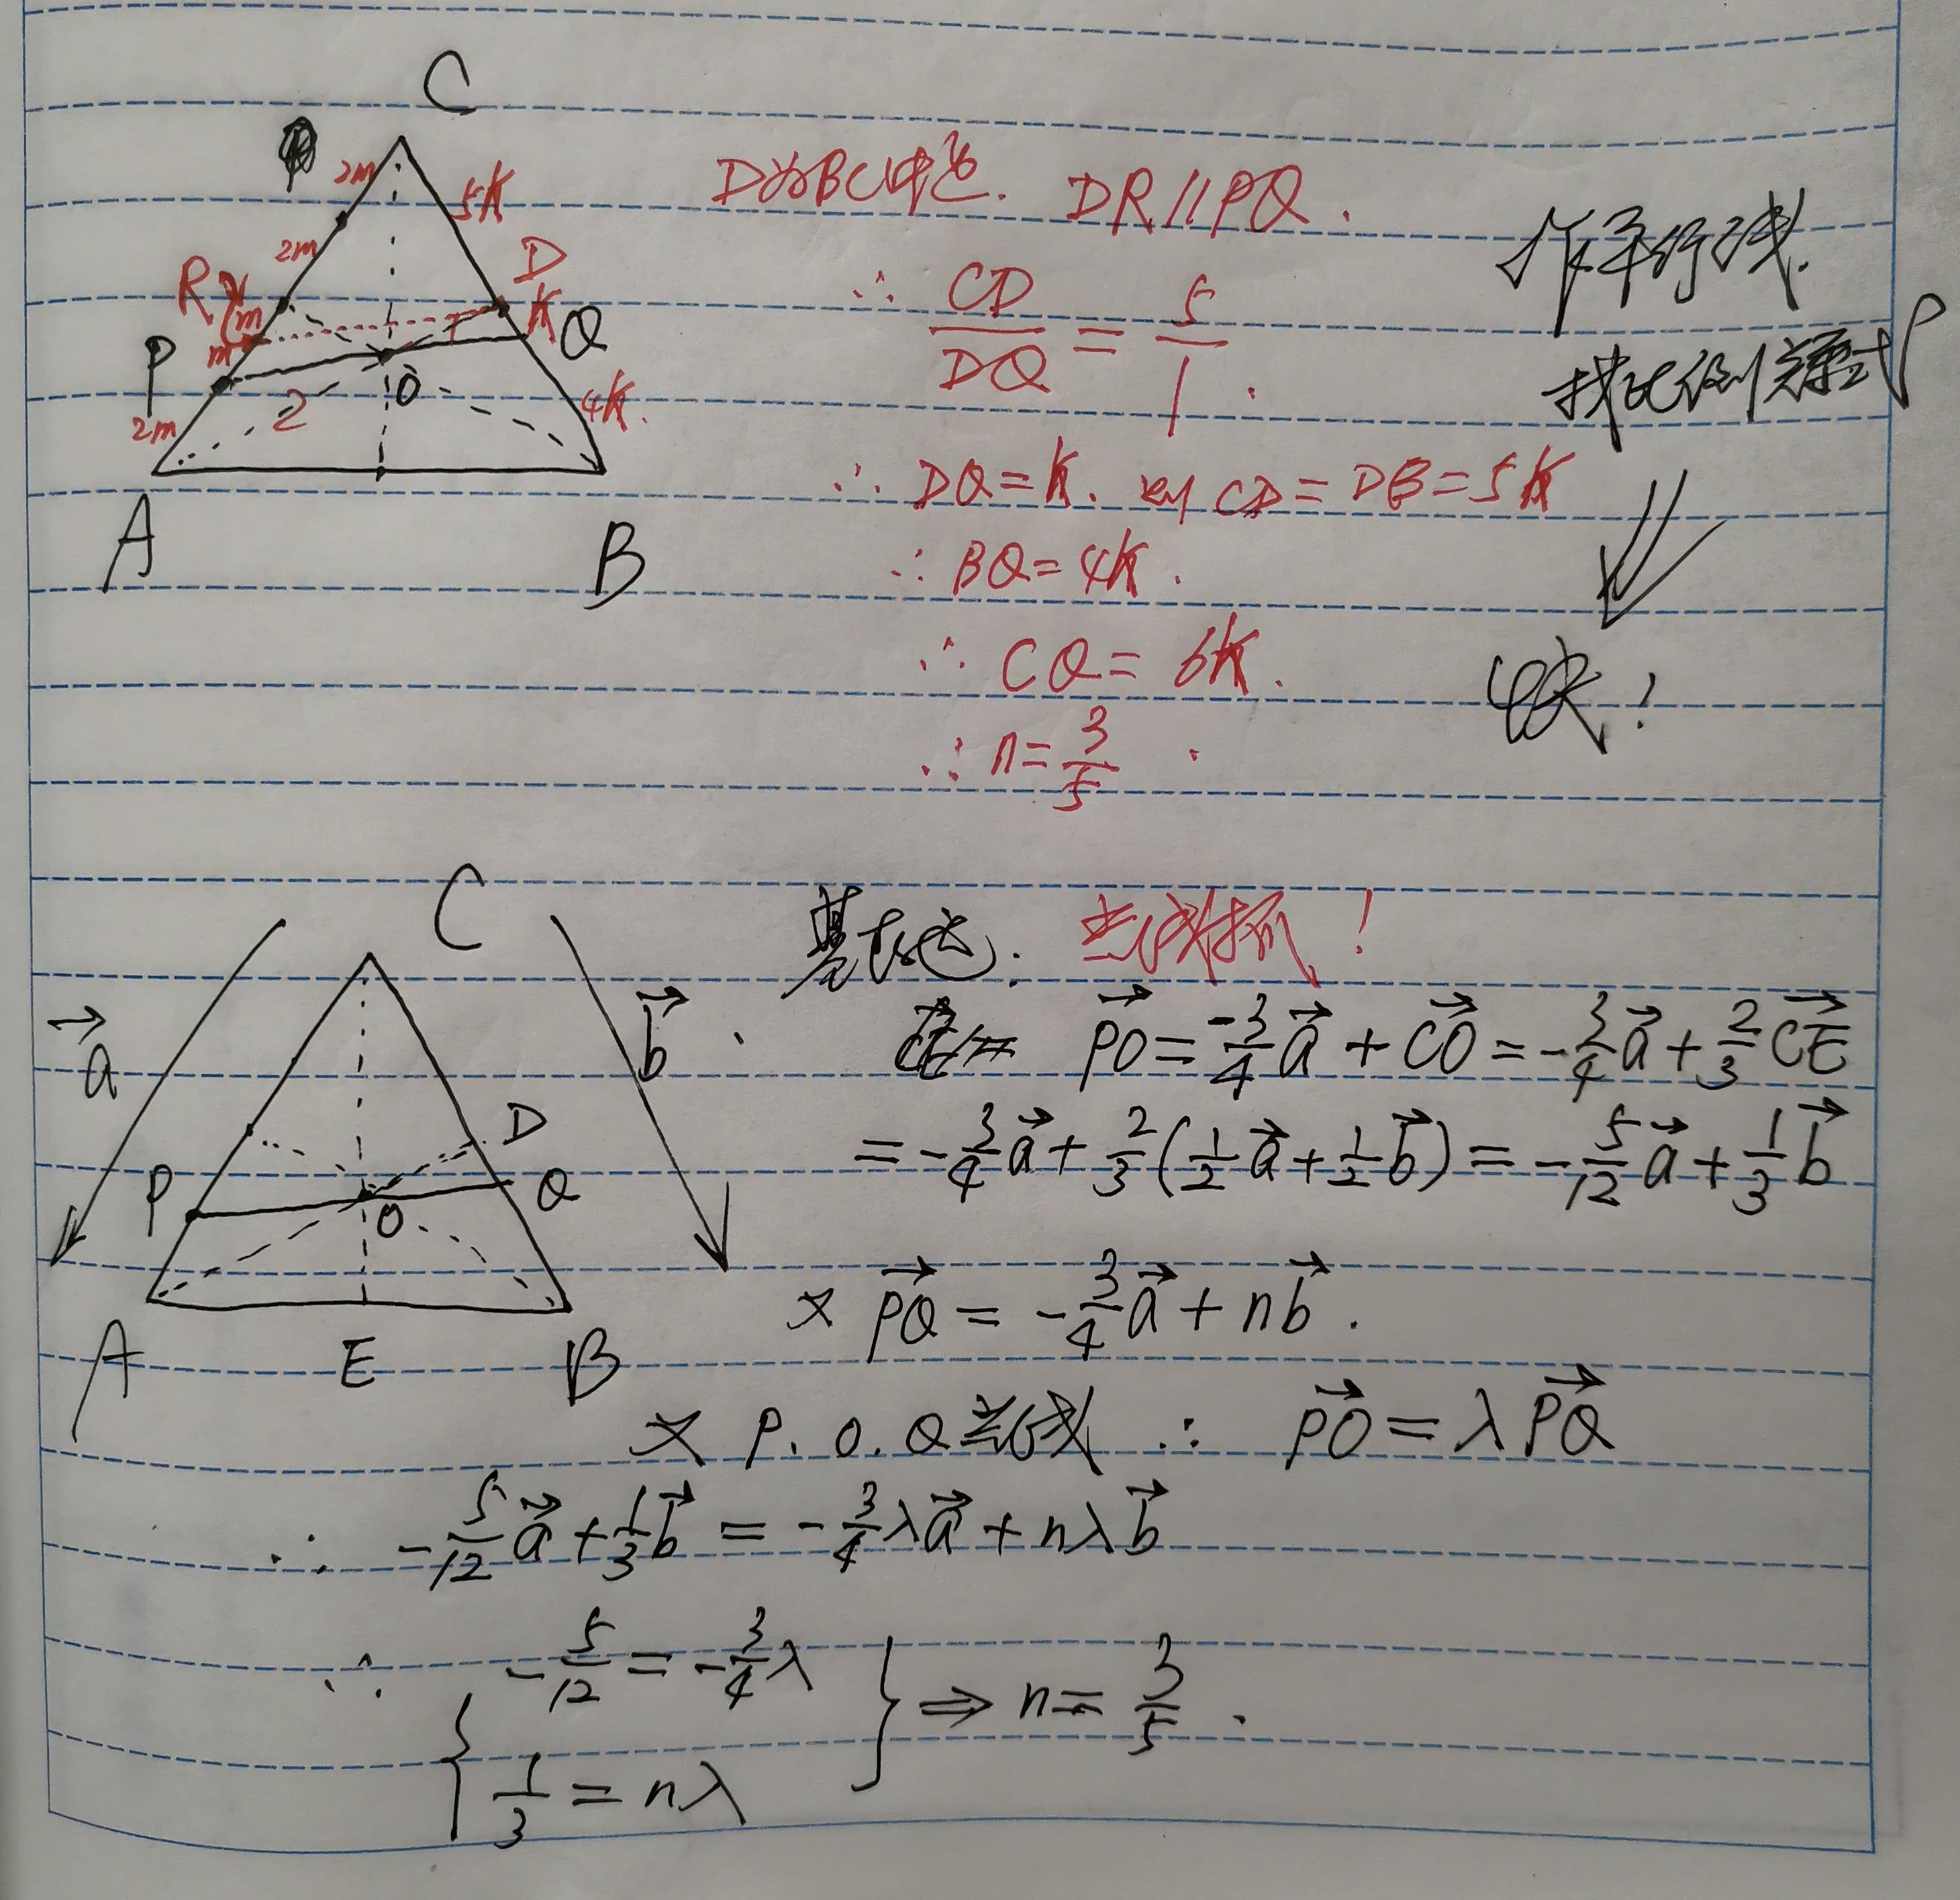 C
2m
5k
2m
D
R
m
k
Q
P
m
O
2
4k.
2m
A
B
D为BC中点. DR∥PQ.
∴ CD/DQ = 5/1.
∴ DQ=k. 则 CD=DB=5k
∴ BQ=4k.
∴ CQ=6k.
∴ n=3/5.
作平行线.
找比例关系式
⇓
快!
C
a⃗
b⃗
D
P
Q
O
A
E
B
基底法. 共线抓!
PO⃗ = -3/4 a⃗ + CO⃗ = -3/4 a⃗ + 2/3 CE⃗
= -3/4 a⃗ + 2/3 (1/2 a⃗ + 1/2 b⃗) = -5/12 a⃗ + 1/3 b⃗
又 PQ⃗ = -3/4 a⃗ + n b⃗.
又 P. O. Q 共线 ∴ PO⃗ = λPQ⃗
∴ -5/12 a⃗ + 1/3 b⃗ = -3/4 λa⃗ + nλb⃗
∴ { -5/12 = -3/4 λ
1/3 = nλ } ⇒ n = 3/5.